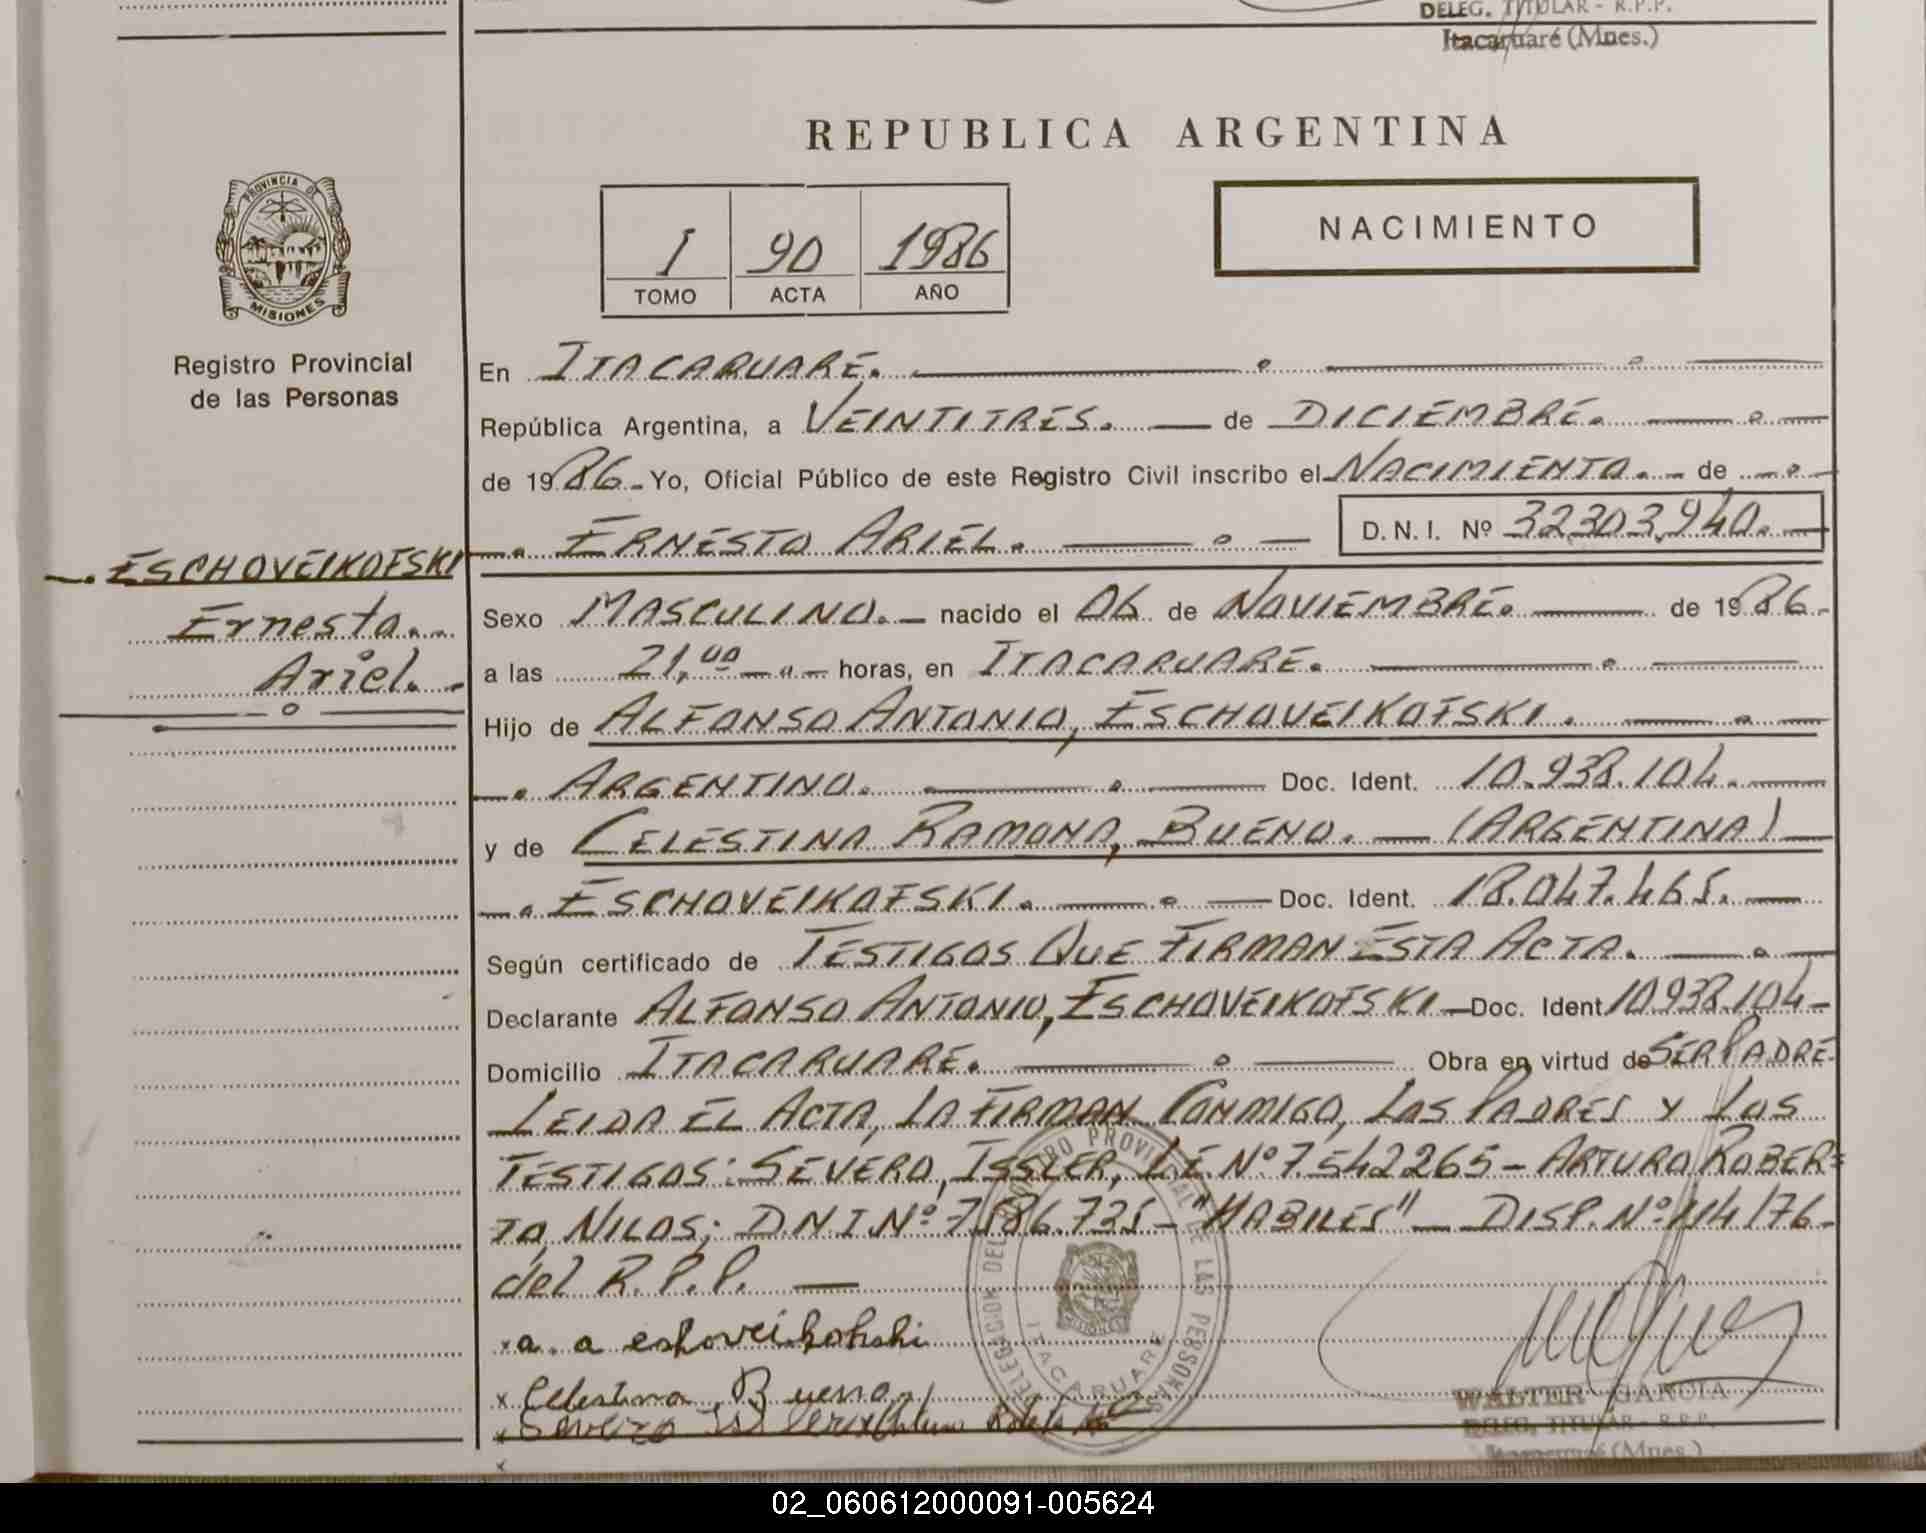 DELEG. TITULAR - R.P.P.
Itacaruaré (Mnes.)
REPUBLICA ARGENTINA
PROVINCIA DE
MISIONES
Registro Provincial
de las Personas
I 90 1986
TOMO ACTA AÑO
NACIMIENTO
En ITACARUARE.
República Argentina, a VEINTITRES. de DICIEMBRE.
de 1986. Yo, Oficial Público de este Registro Civil inscribo el NACIMIENTO. de
ERNESTO ARIEL. D.N.I. Nº 32303,940.
ESCHOVEIKOFSKI
Ernesto.
Ariel.
Sexo MASCULINO. nacido el 06 de NOVIEMBRE. de 1986.
a las 21,00 horas, en ITACARUARE.
Hijo de ALFONSO ANTONIO, ESCHOVEIKOFSKI.
ARGENTINO. Doc. Ident. 10.938.104.
y de CELESTINA RAMONA, BUENO. (ARGENTINA)
ESCHOVEIKOFSKI. Doc. Ident. 18.047.465.
Según certificado de TESTIGOS QUE FIRMAN ESTA ACTA.
Declarante ALFONSO ANTONIO, ESCHOVEIKOFSKI Doc. Ident 10.938.104
Domicilio ITACARUARE. Obra en virtud de SER PADRE.
LEIDA EL ACTA, LA FIRMAN CONMIGO, LOS PADRES Y LOS
TESTIGOS: SEVERO, ISSLER, L.E. Nº 7.542265 - ARTURO ROBER=
TO, NILOS; D.N.I Nº 7.586.725 - "HABILES" - DISP. Nº 114/76
del R.P.P.
DELEGACION DEL REGISTRO PROVINCIAL DE LAS PERSONAS
ITACARUARE
x a. a eshoveikohski
x Celestina Bueno
WALTER GARCIA
DELEG. TITULAR - R.P.P.
Itacaruaré (Mnes.)
02_060612000091-005624